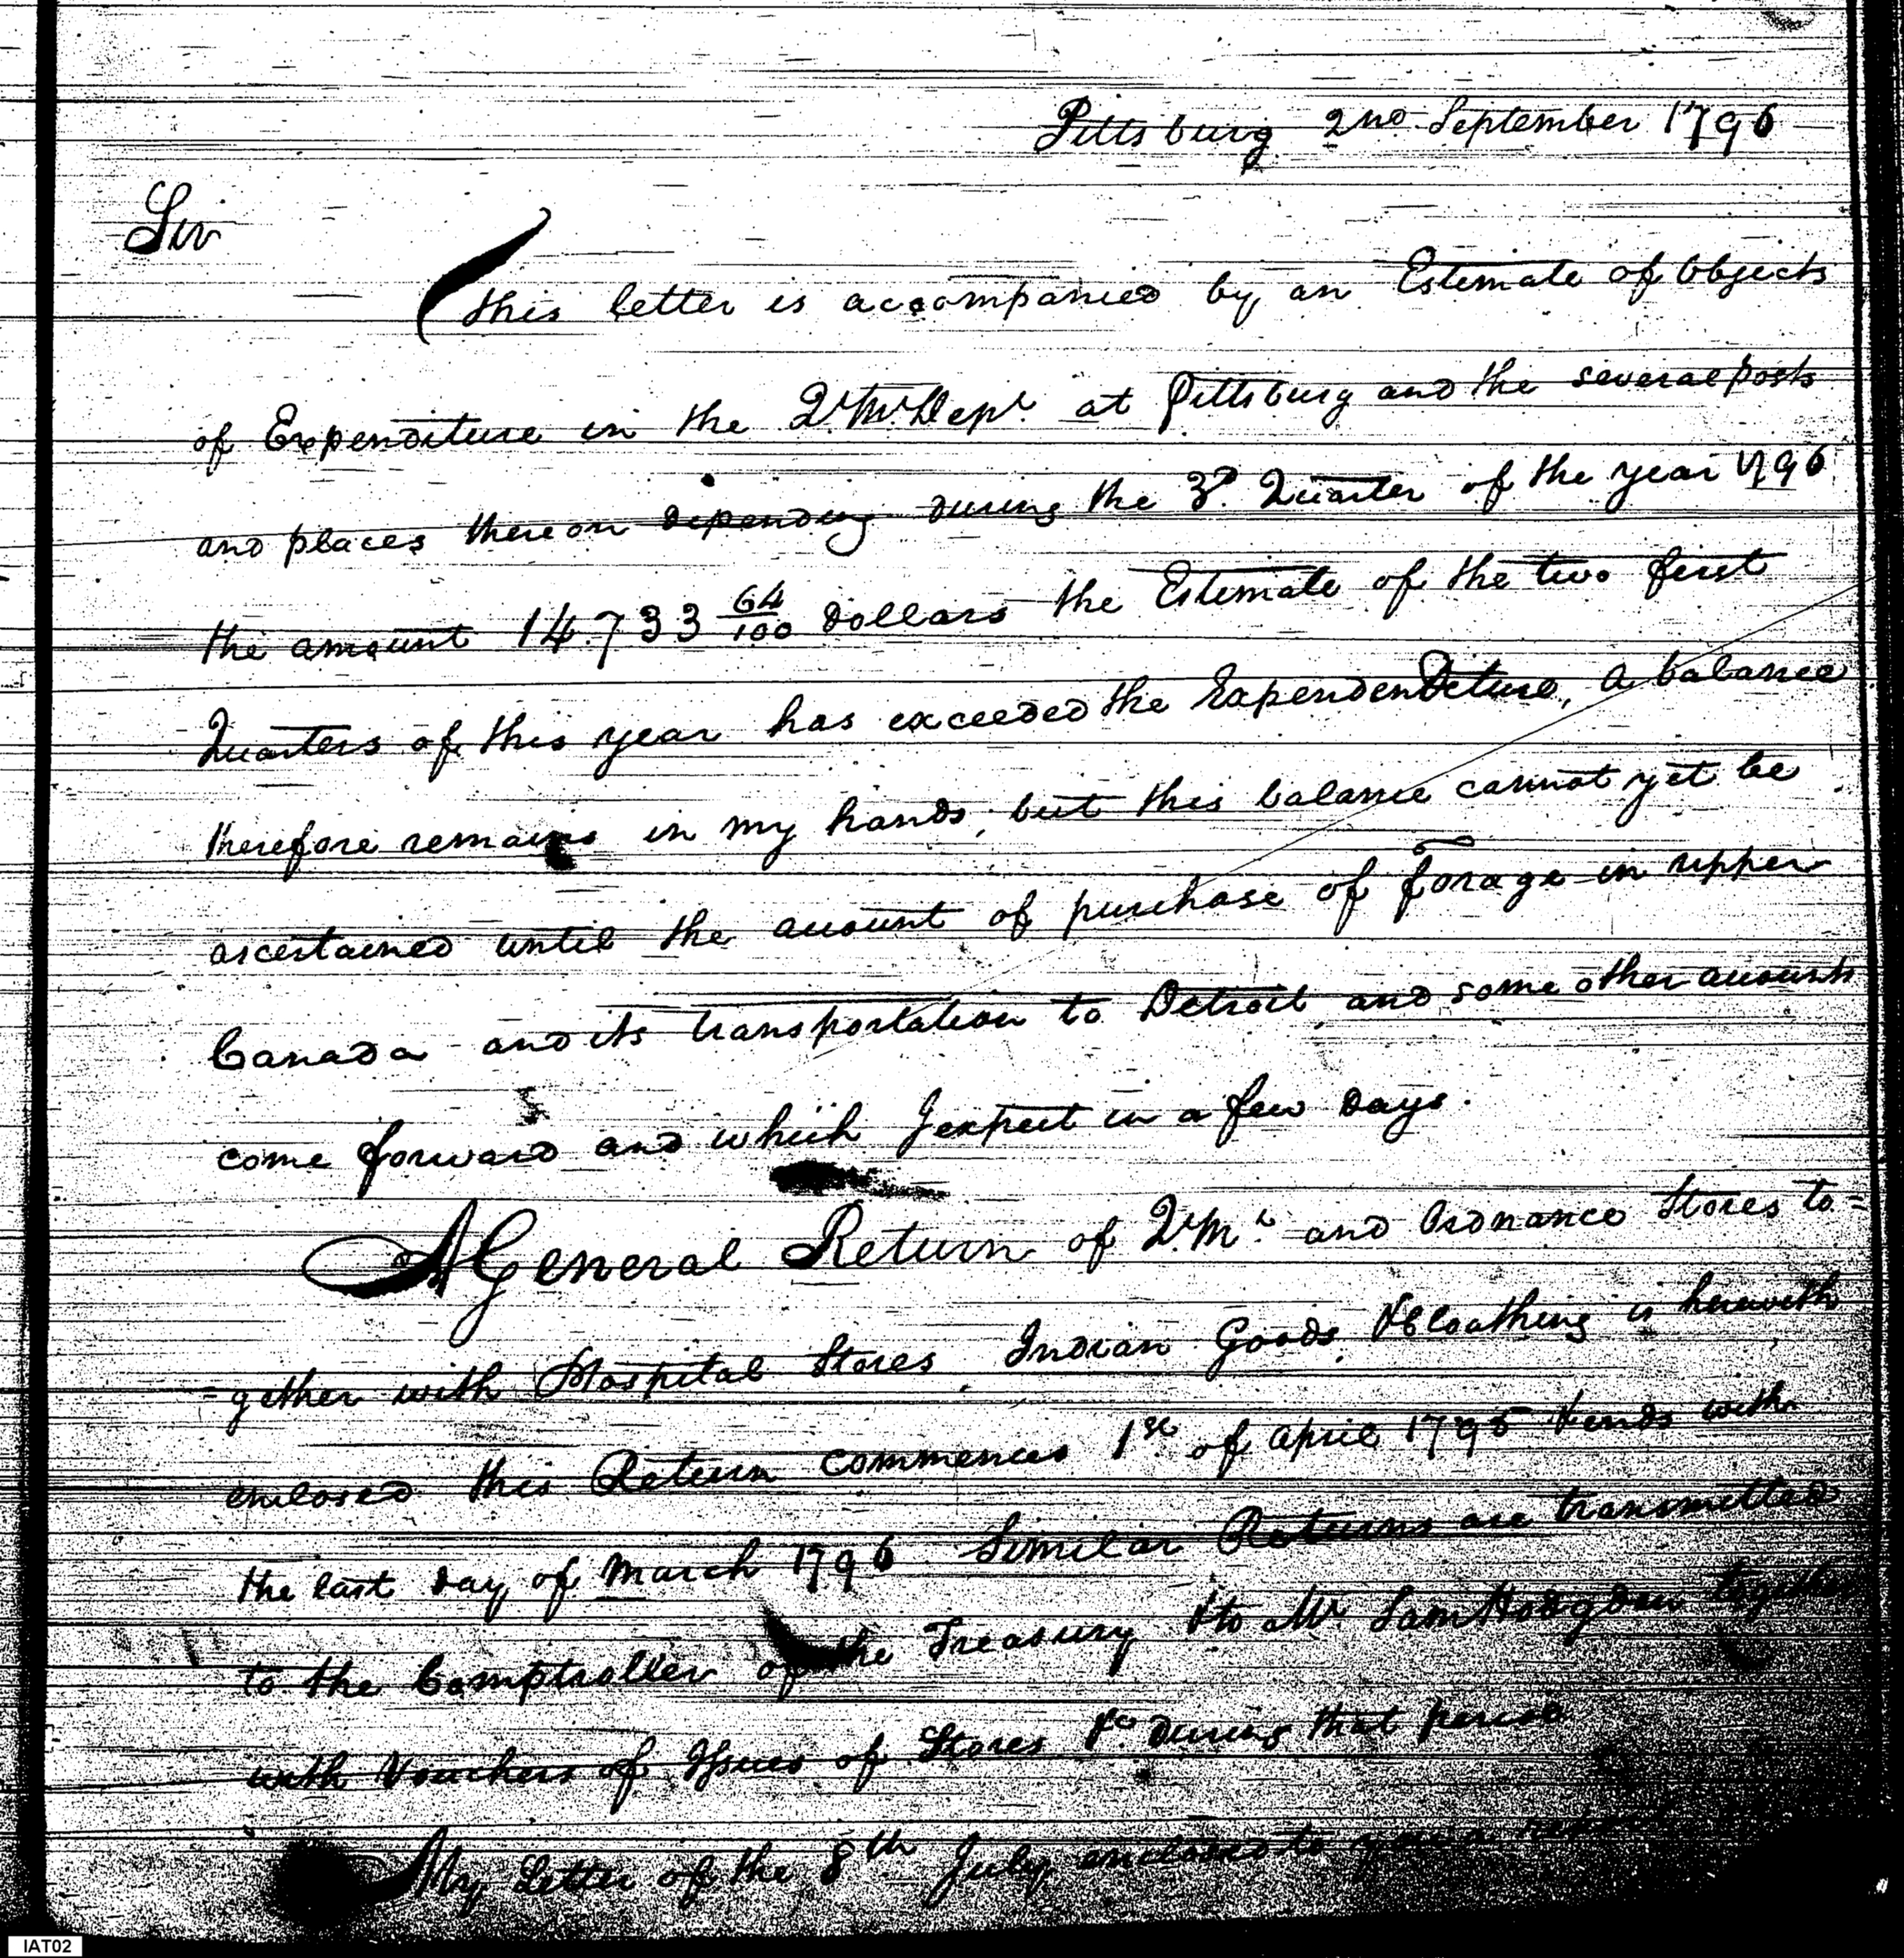 Pittsburg 2nd September 1796
Sir
this letter is accompanied by an Estimate of Objects
of Expenditure in the Qr. Mr. Dept. at Pittsburg and the several posts
and places thereon depending during the 3d. Quarter of the year 1796
the amount 14.733 64/100 Dollars the Estimate of the two first
Quarters of this year has exceeded the Expendenditure, a balance
therefore remains in my hands, but this balance cannot yet be
ascertained until the account of purchase of forage in upper
Canada and its transportation to Detroit and some other accounts
come forward and which I expect in a few Days.
A General Return of Qr. Mr. and Ordnance Stores to=
=gether with Hospital Stores, Indian Goods & Cloathing is herewith
enclosed this Return commences 1st of April 1795 & ends with
the last day of March 1796 Similar Returns are transmitted
to the Comptroller of the Treasury & to Mr. Sam Hodgdon together
with Vouchers of Issues of Stores &c. During that period
My Letter of the 8th July enclosed to you a
IAT02